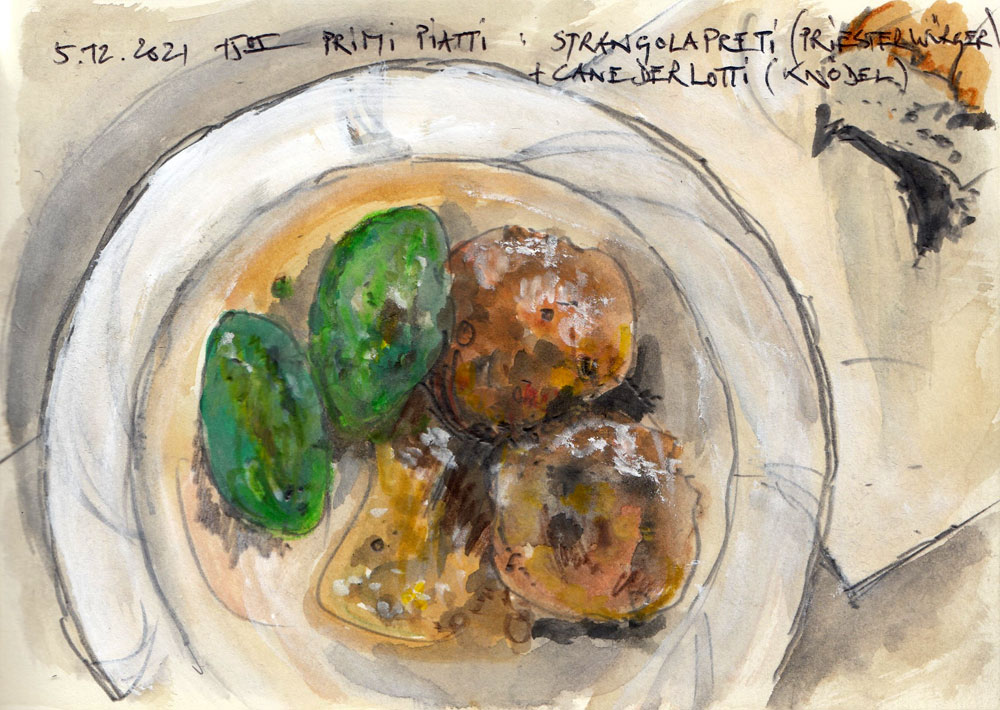 5.12.2021 15⁰⁰ PRIMI PIATTI : STRANGOLAPRETI (PRIESTERWÜRGER)
+ CANEDERLOTTI (KNÖDEL)